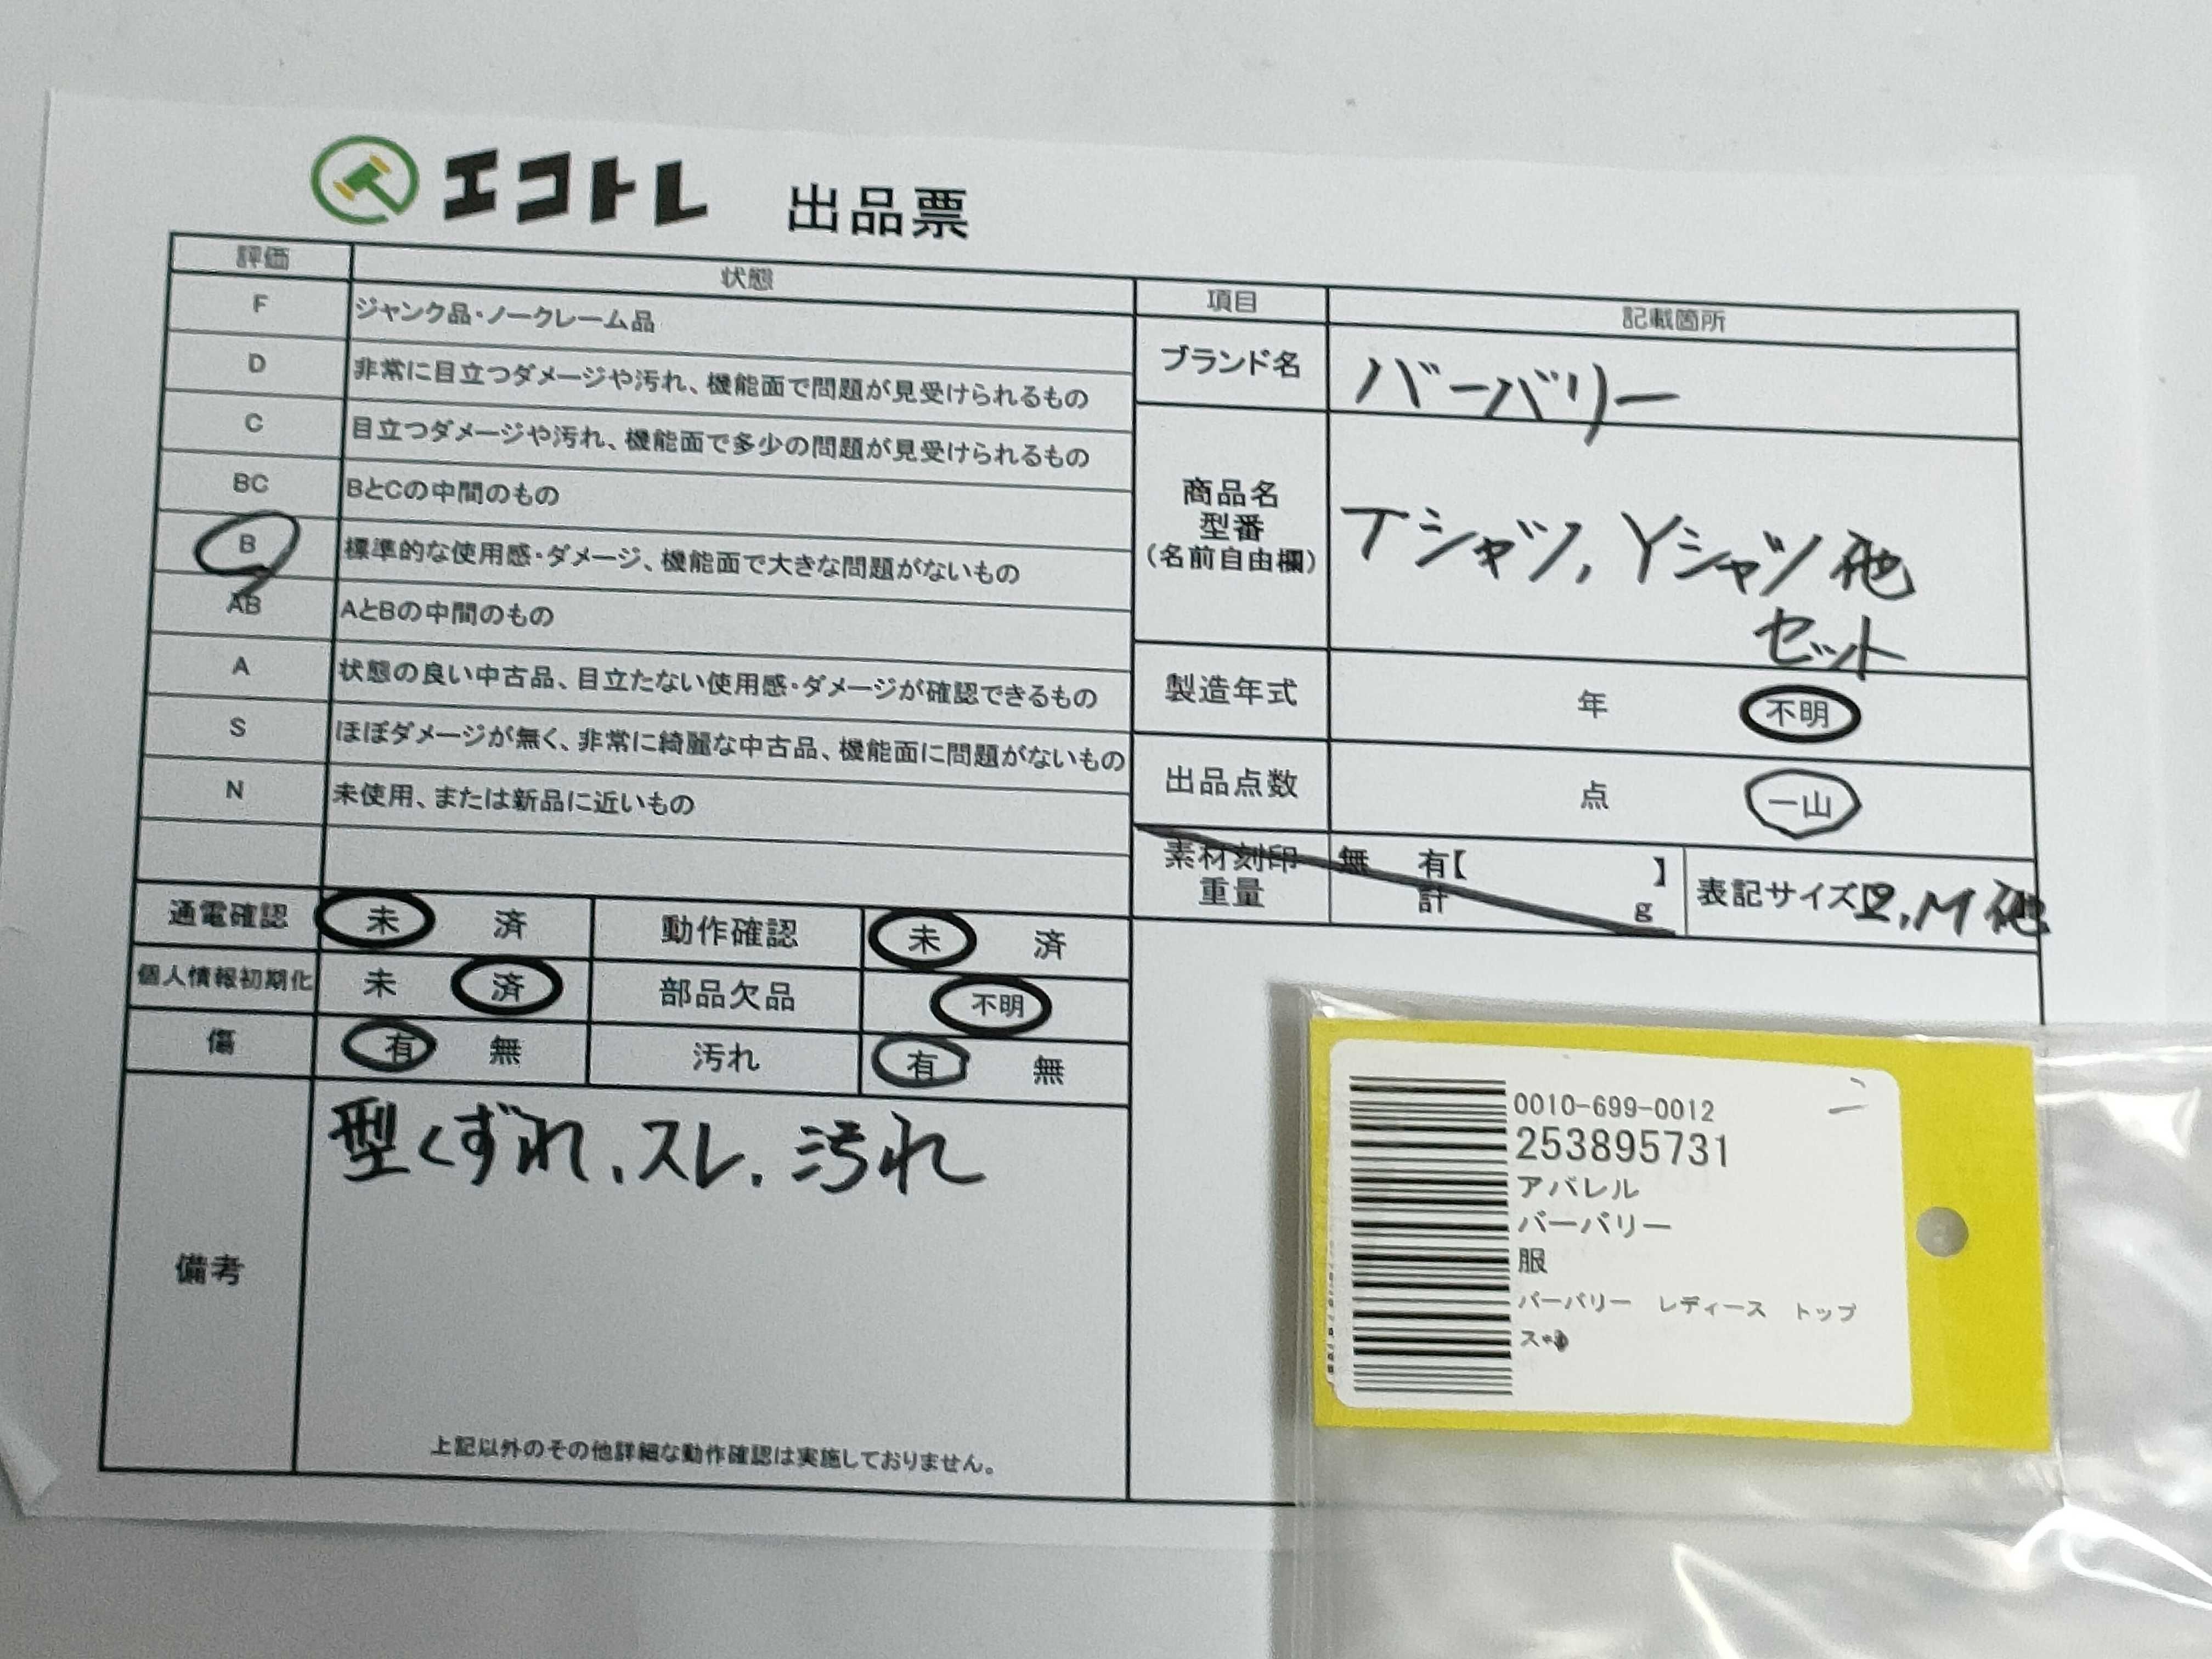 エコトレ 出品票
評価 状態
F ジャンク品・ノークレーム品
D 非常に目立つダメージや汚れ、機能面で問題が見受けられるもの
C 目立つダメージや汚れ、機能面で多少の問題が見受けられるもの
BC BとCの中間のもの
B 標準的な使用感・ダメージ、機能面で大きな問題がないもの
AB AとBの中間のもの
A 状態の良い中古品、目立たない使用感・ダメージが確認できるもの
S ほぼダメージが無く、非常に綺麗な中古品、機能面に問題がないもの
N 未使用、または新品に近いもの
項目 記載箇所
ブランド名 バーバリー
商品名
型番
(名前自由欄)
Tシャツ, Yシャツ他
セット
製造年式 年 不明
出品点数 点 一山
素材刻印 無 有【 】
重量 計 g
表記サイズ M 他
通電確認 未 済 動作確認 未 済
個人情報初期化 未 済 部品欠品 不明
傷 有 無 汚れ 有 無
備考
型くずれ、スレ、汚れ
上記以外のその他詳細な動作確認は実施しておりません。
0010-699-0012
253895731
アパレル
バーバリー
服
バーバリー レディース トップ
ス